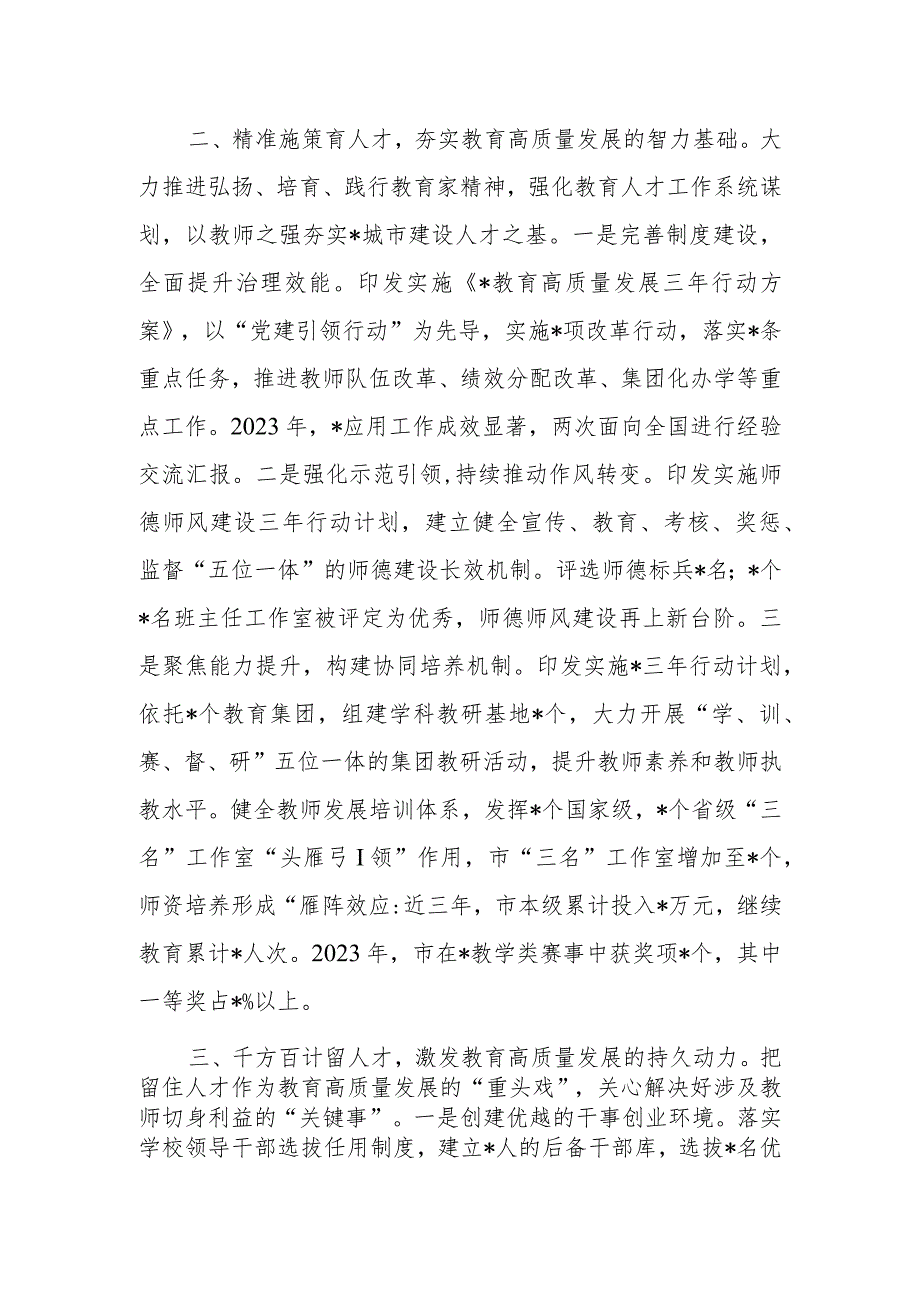 二、精准施策育人才，夯实教育高质量发展的智力基础。大
力推进弘扬、培育、践行教育家精神，强化教育人才工作系统谋
划，以教师之强夯实*城市建设人才之基。一是完善制度建设，
全面提升治理效能。印发实施《*教育高质量发展三年行动方
案》，以“党建引领行动”为先导，实施*项改革行动，落实*条
重点任务，推进教师队伍改革、绩效分配改革、集团化办学等重
点工作。2023 年，*应用工作成效显著，两次面向全国进行经验
交流汇报。二是强化示范引领,持续推动作风转变。印发实施师
德师风建设三年行动计划，建立健全宣传、教育、考核、奖惩、
监督“五位一体”的师德建设长效机制。评选师德标兵*名；*个
*名班主任工作室被评定为优秀，师德师风建设再上新台阶。三
是聚焦能力提升，构建协同培养机制。印发实施*三年行动计划，
依托*个教育集团，组建学科教研基地*个，大力开展“学、训、
赛、督、研”五位一体的集团教研活动，提升教师素养和教师执
教水平。健全教师发展培训体系，发挥*个国家级，*个省级“三
名”工作室“头雁弓 I 领”作用，市“三名”工作室增加至*个，
师资培养形成“雁阵效应:近三年，市本级累计投入*万元，继续
教育累计*人次。2023 年，市在*教学类赛事中获奖项*个，其中
一等奖占*%以上。
三、千方百计留人才，激发教育高质量发展的持久动力。把
留住人才作为教育高质量发展的“重头戏”，关心解决好涉及教
师切身利益的“关键事”。一是创建优越的干事创业环境。落实
学校领导干部选拔任用制度，建立*人的后备干部库，选拔*名优